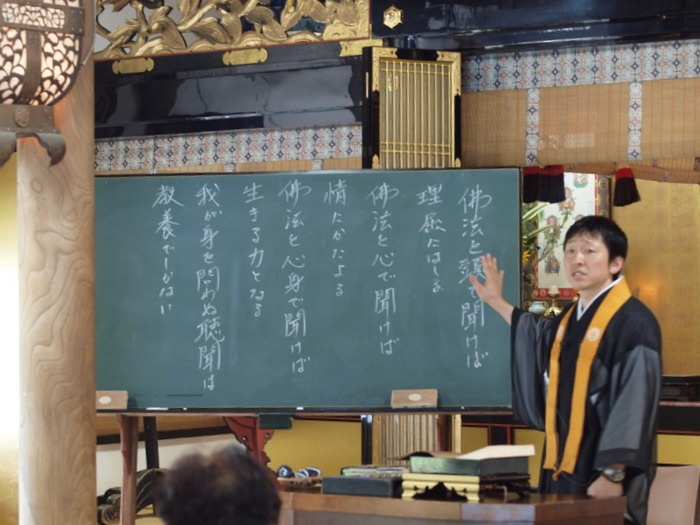 佛法を頭で聞けば
理屈にはしる
佛法を心で聞けば
情にかたよる
佛法を心身で聞けば
生きる力となる
我が身を問わぬ聴聞は
教養でしかない